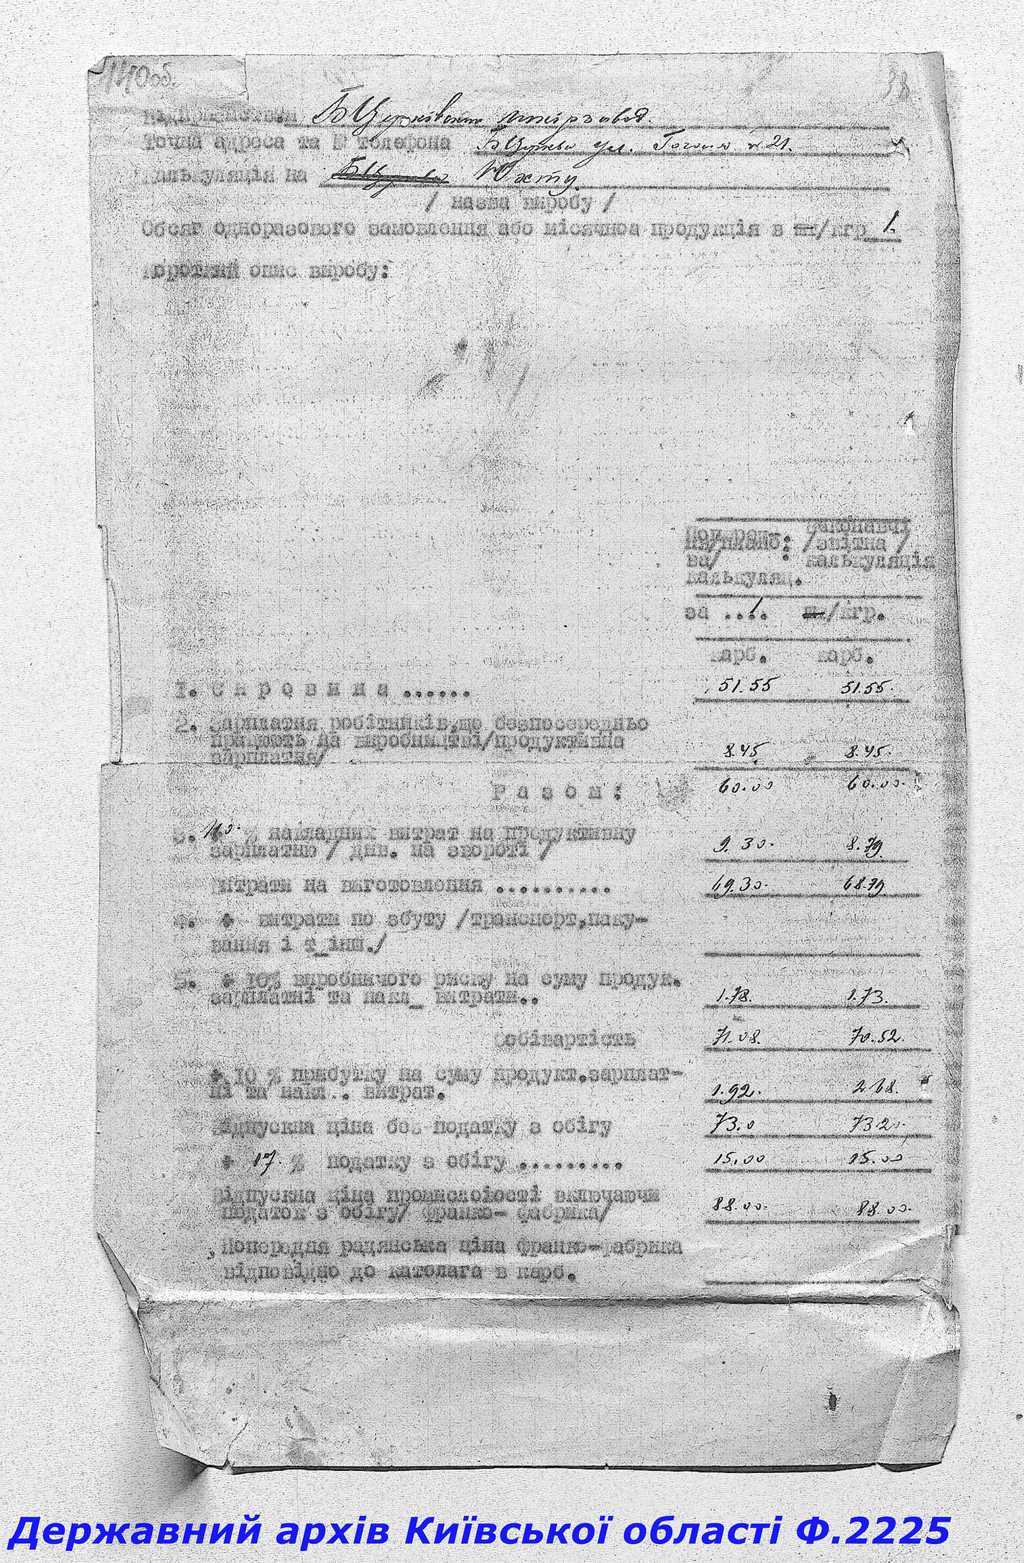 140об.
38
Підприємство Б Церківський шкірзавод.
Точна адреса та № телефона БЦерква ул. Гоголя № 21.
Калькуляція на БЦерква Юхту
/ назва виробу /
Обсяг одноразового замовлення або місячноа продукція в шт/кгр 1.
Короткий опис виробу:
законавчі
/звітна /
ва/ : калькуляція
калькуляц.
за ..1.. шт/кгр.
карб. карб.
1. С и р о в и н а ...... 51.55 51.55.
2. Зарплатня робітників,що безпосередньо
працюють на виробництві/продуктивна
зарплатня/ 8.45 8.45.
Р а з о м : 60.00 60.00.
3. + 110. % накладних витрат на продуктивну
зарплатню / див. на звороті / 9.30. 8.79.
Витрати на виготовлення .......... 69.30. 68.79
4. + витрати по збуту /транспорт,паку-
вання і т_інш./
5. + 10% виробничого риску на суму продук.
зарплатні та накл_ витрати.. 1.78. 1.73.
Собівартість 71.08. 70.52.
+ 10 % прибутку на суму продукт.зарплат-
ні та накл.. витрат. 1.92. 2.68.
Відпускна ціна без податку з обігу 73.0 73.20.
+ 17. % податку з обігу ......... 15.00 15.00
Відпускна ціна промисловості включаючи
податок з обігу/ франко- фабрика/ 88.00. 88.00.
Попередня радянська ціна франко-фабрика
відповідно до католага в карб.
Державний архів Київської області Ф.2225